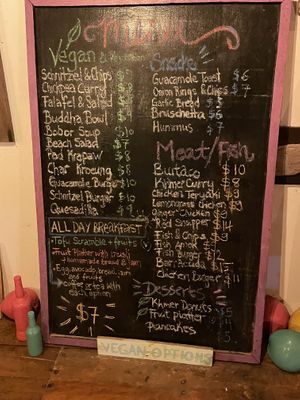 Menu
Vegan & Vegetarian
Schnitzel & Chips $
Chickpea Curry $
Falafel & Salad $
Buddha Bowl $
Bobor Soup $10
Beach Salad $7
Pad Krapaw $8
Char Kroeung $8
Guacamole Burger $10
Schnitzel Burger $10
Quesadilla $9
ALL DAY BREAKFAST
Tofu Scramble + fruits
Fruit Platter with
+ homemade bread & jam
Egg, avocado, bread, jam
and fruits
coffee or tea with
each option
$7
Snacks
Guacamole Toast $6
Onion Rings & Chips $7
Garlic Bread $5
Bruschetta $6
Hummus $7
Meat/Fish
Butao $10
Khmer Curry $8
Chicken Teriyaki $9
Lemongrass chicken
Ginger Chicken $9
Red Snapper $14
Fish & Chips $9
Fish Amok
Fish Burger
Beer
Chicken Burger $11
Desserts
Khmer Donuts $5
Fruit platter
Pancakes
VEGAN OPTIONS